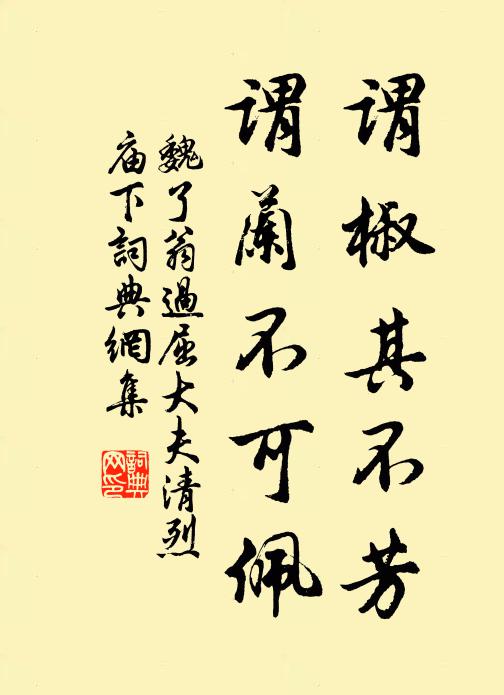 谓椒其不芳
谓蘭不可佩
魏了翁過屈大夫清烈
庙下詞典網集
詞典
网印